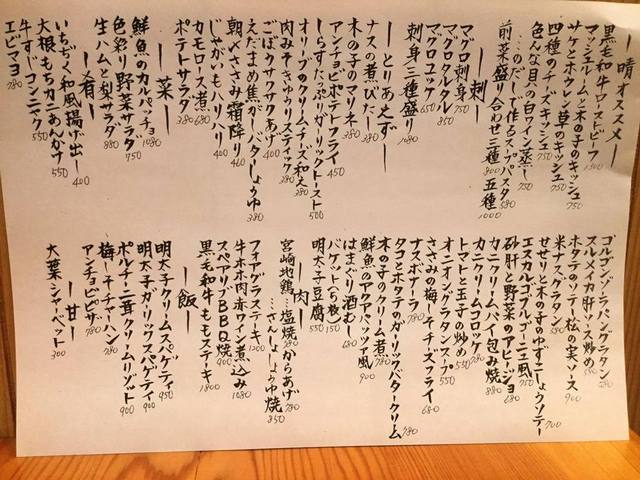 ー晴オススメー
黒毛和牛ローストビーフ 1300
マッシュルームと木の子のキッシュ 750
サケとホウレン草のキッシュ 750
四種のチーズキッシュ 750
色んな貝の白ワイン蒸し 750
…のだしで作るスープパスタ 580
前菜盛り合わせ 三種 800 五種 1000
ー刺ー
マグロ刺身 750
マグロタルタル 850
マグロユッケ 650
刺身三種盛り 1080
ーとりあえずー
ナスの煮びたし 380
木の子のマリネ 380
アンチョビポテトフライ 450
しらすたっぷりガーリックトースト 500
オリーブのクリームチーズ和え 380
肉みそきゅうりスティック 380
ごぼうサクサクあげ 400
えだまめ焦がしバターしょうゆ 380
朝〆ささみ霜降り 460
じゃがいもバリバリ 400
カモロース煮 680
ポテトサラダ 380
ー菜ー
鮮魚のカルパッチョ 1080
色彩り野菜サラダ 750
生ハムと梨サラダ 880
ー肴ー
いちぢく和風揚げ出し 400
大根もちカニあんかけ 550
牛すじコンニャク 550
エビマヨ 780
ゴルゴンゾーラパングラタン 780
スルメイカ肝ソース炒め 750
ホタテのソテー松の実ソース 900
米ナスグラタン 750
せせりと木の子のゆずこしょうソテー 700
エスカルゴブルゴーニュ風 750
砂肝と野菜のアヒージョ 680
カニクリームパイ包み焼 880
カニクリームコロッケ 780
トマトと玉子の炒め 550
オニオングラタンスープ 550
ささみの梅しそチーズフライ 680
ナスボナーラ 780
タコとホタテのガーリックバタークリーム 780
木の子のクリーム煮 780
鮮魚のアクアパッツァ風 900
はまぐり酒むし 680
バゲット(5枚) 150
明太子豆腐 550
ー肉ー
宮崎地鶏…塩焼 780 からあげ 780
…さんしょうしょうゆ焼 850
フォアグラステーキ 1200
牛ホホ肉赤ワイン煮込み 1080
スペアリブBBQ焼 900
黒毛和牛モモステーキ 1800
ー飯ー
明太子クリームスパゲティ 950
明太子ガーリックスパゲティ 900
ポルチーニ茸クリームリゾット 900
梅しそチャーハン 780
アンチョビピザ 780
ー甘ー
大葉シャーベット 300